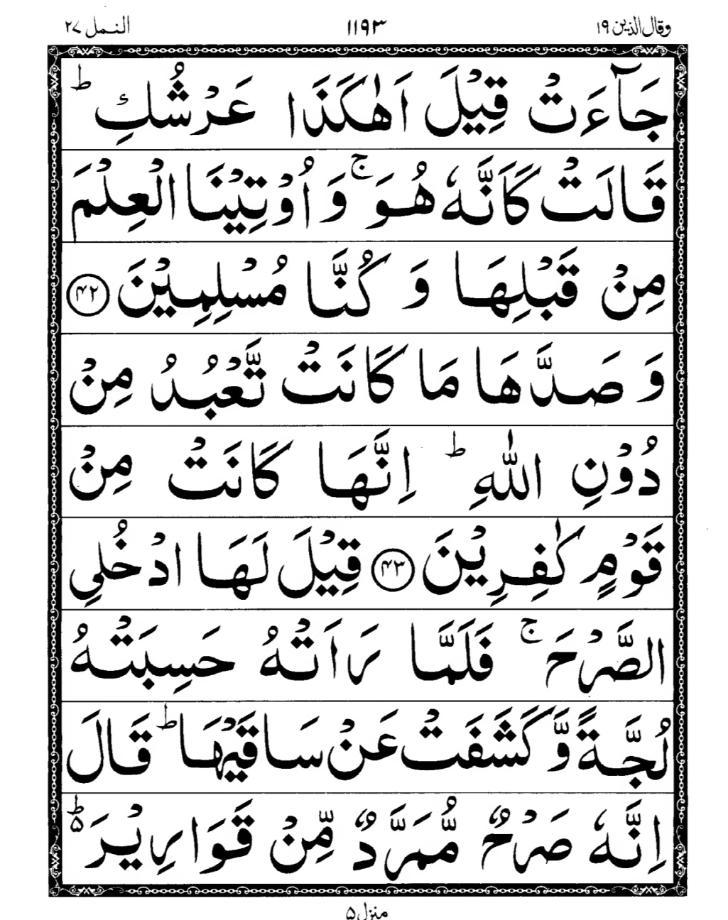 وقال الذین ۱۹ ۱۱۹۳ النمل ۲۷
جَآءَتْ قِیْلَ اَهٰکَذَا عَرْشُكِ ؕ
قَالَتْ کَاَنَّهٗ هُوَ ۚ وَ اُوْتِیْنَا الْعِلْمَ
مِنْ قَبْلِهَا وَ کُنَّا مُسْلِمِیْنَ ﴿۴۲﴾
وَ صَدَّهَا مَا کَانَتْ تَّعْبُدُ مِنْ
دُوْنِ اللّٰهِ ؕ اِنَّهَا کَانَتْ مِنْ
قَوْمٍ کٰفِرِیْنَ ﴿۴۳﴾ قِیْلَ لَهَا ادْخُلِی
الصَّرْحَ ۚ فَلَمَّا رَاَتْهُ حَسِبَتْهُ
لُجَّةً وَّ کَشَفَتْ عَنْ سَاقَیْهَا ؕ قَالَ
اِنَّهٗ صَرْحٌ مُّمَرَّدٌ مِّنْ قَوَارِیْرَ ۬ؕ
منزل ۵